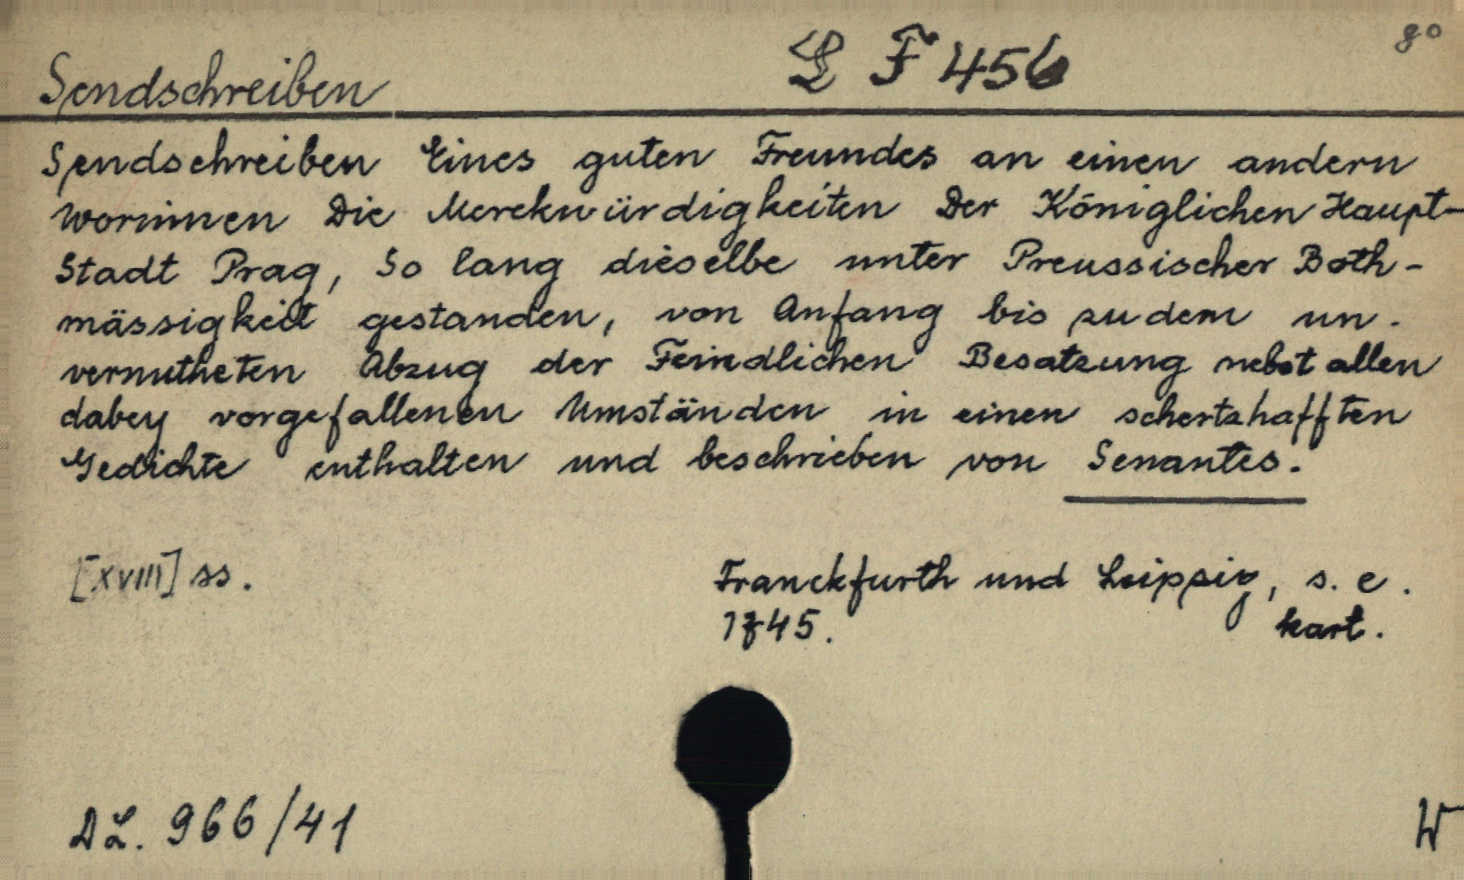 Sendschreiben L F 456 8°
Sendschreiben Eines guten Freundes an einen andern
worinnen Die Merckwürdigkeiten Der Königlichen Haupt-
Stadt Prag, So lang dieselbe unter Preussischer Both-
mässigkeit gestanden, von Anfang bis zu dem un-
vermutheten Abzug der Feindlichen Besatzung nebst allen
dabey vorgefallenen Umständen in einen schertzhafften
Gedichte enthalten und beschrieben von Senantes.
[XVIII] ss. Franckfurth und Leipzig, s. e.
1745. kart.
DL. 966/41 W